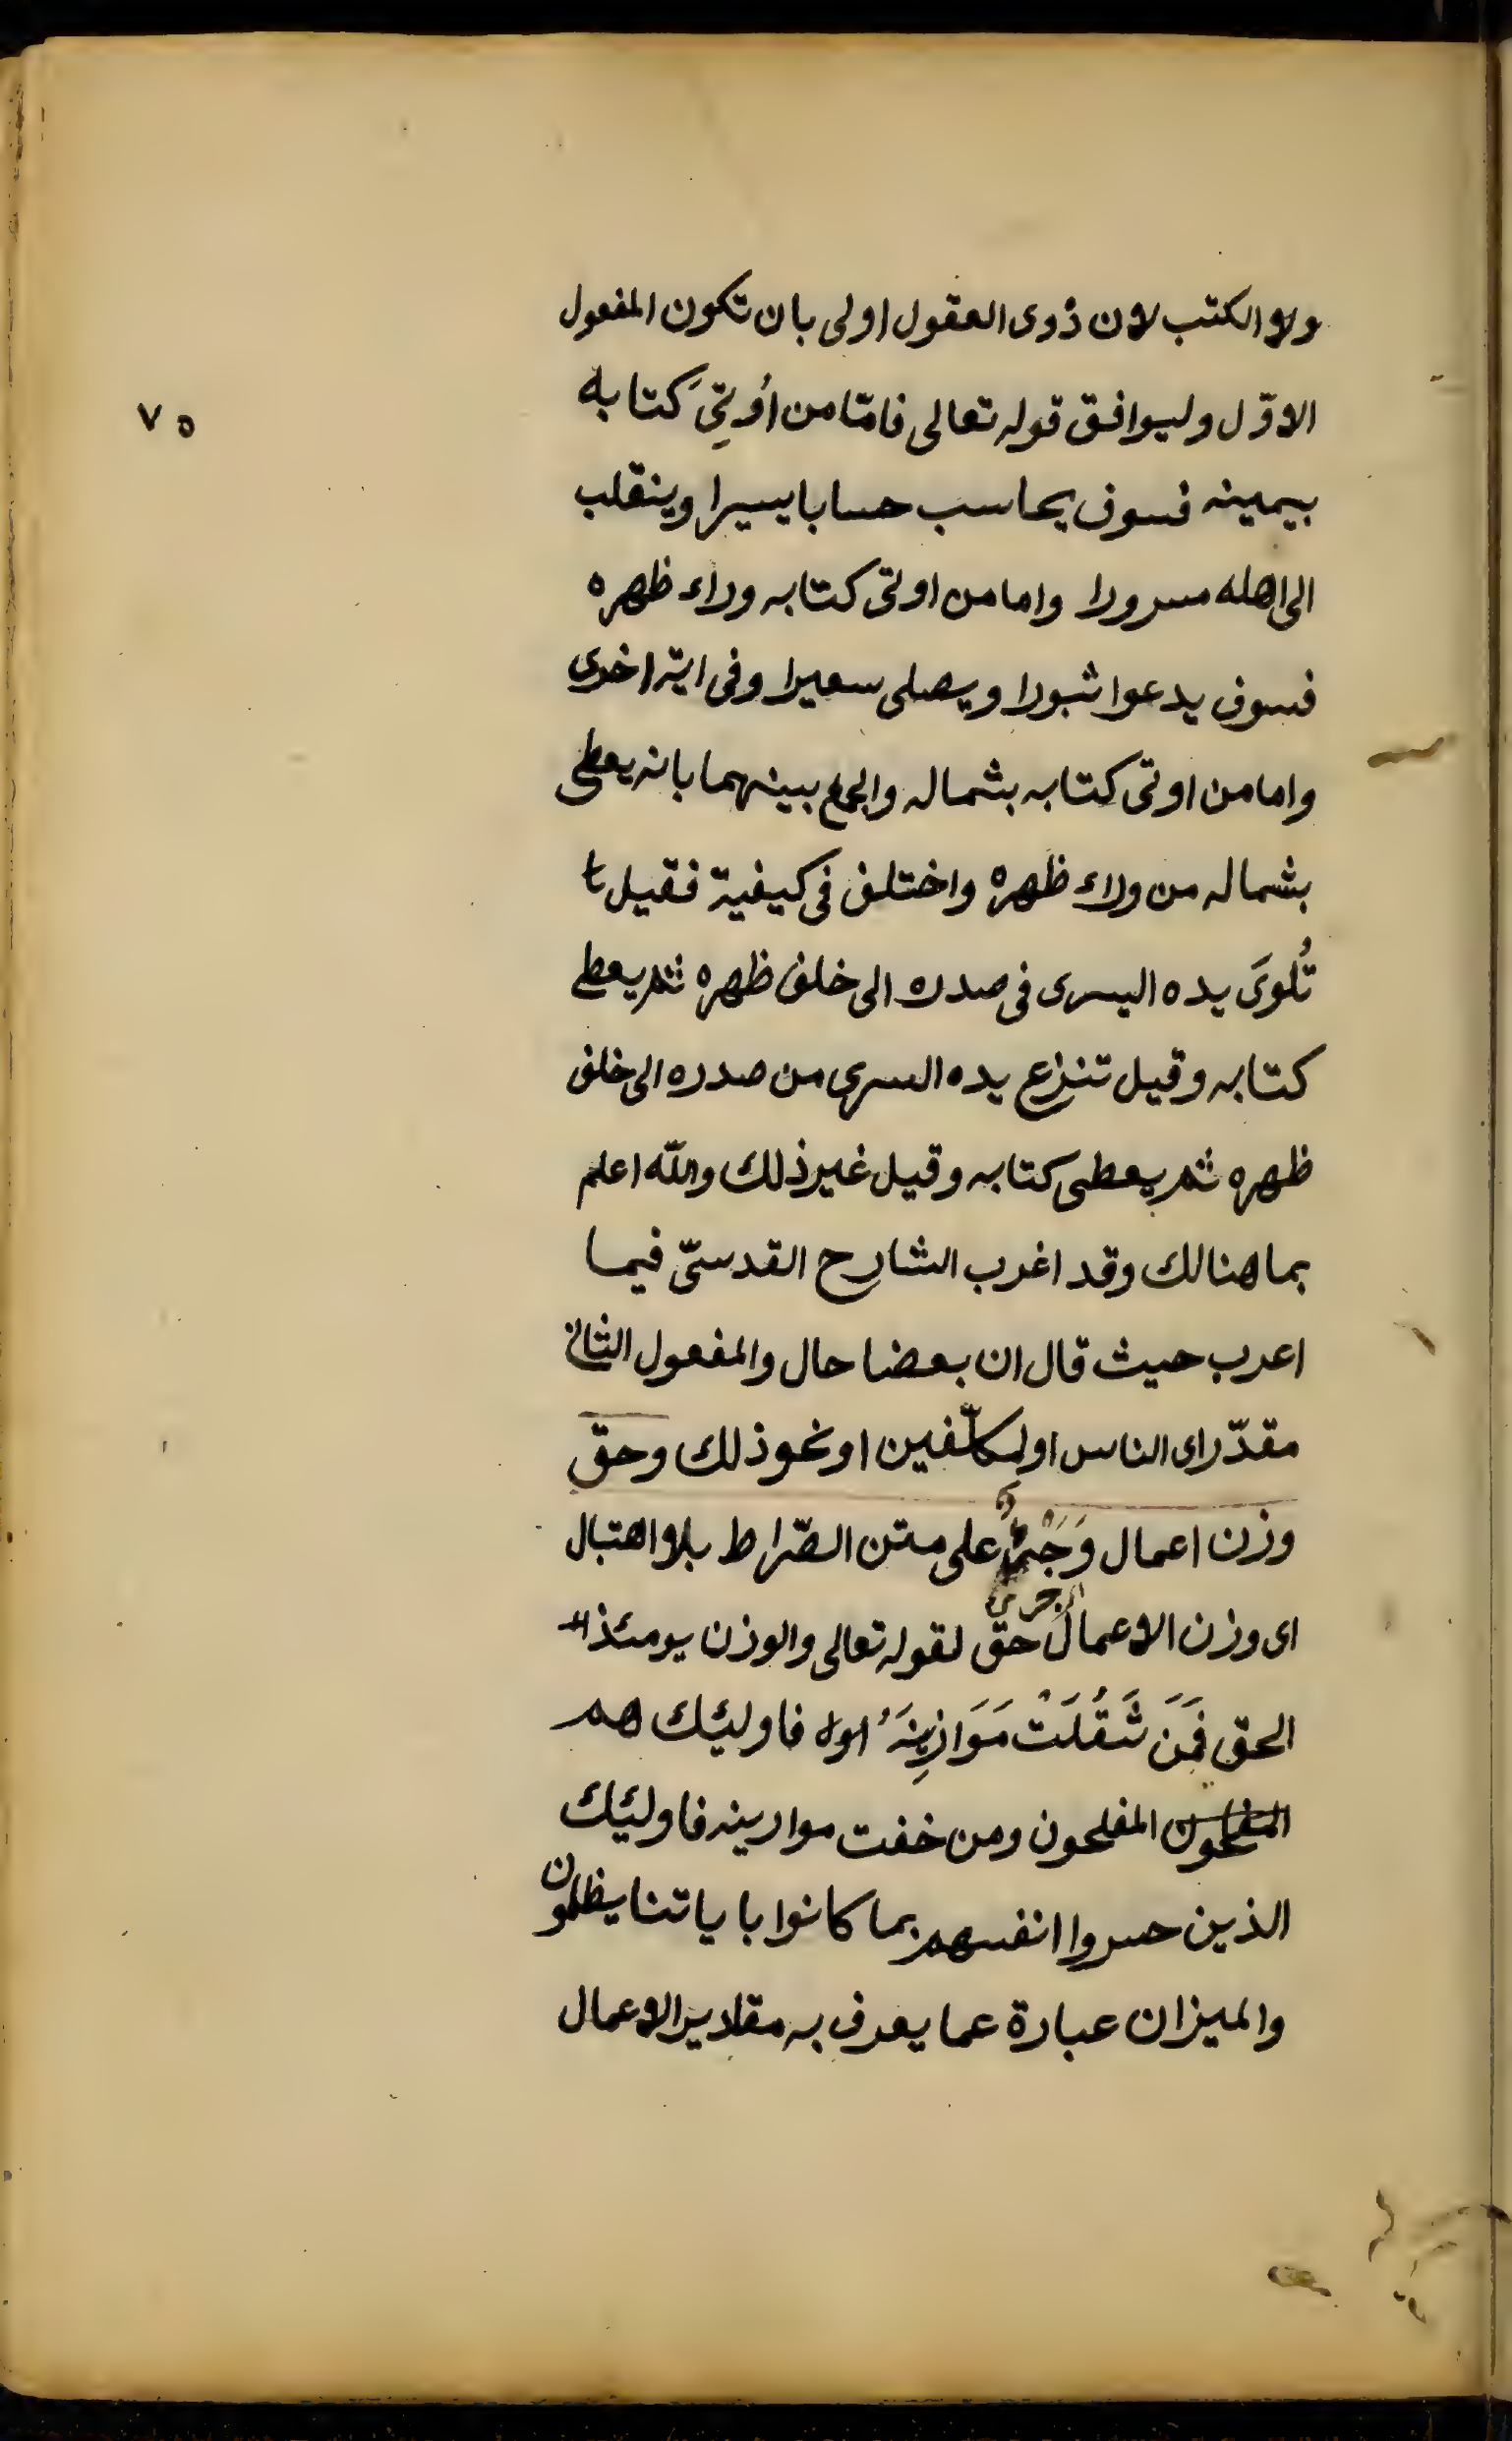 ولا الكتب لان ذوى العقول اولى بان تكون المفعول
الاوّل وليوافق قوله تعالى فامّا من أُوتِيَ كتابه
٧٥
بيمينه فسوف يحاسب حسابا يسيرا وينقلب
الى اهله مسرورا واما من اوتى كتابه وراء ظهره
فسوف يدعوا ثبورا ويصلى سعيرا وفى اية اخرى
واما من اوتى كتابه بشماله والجمع بينهما بانه يعطى
بشماله من وراء ظهره واختلف فى كيفية فقيل
تُلوَى يده اليسرى فى صدره الى خلف ظهره ثم يعطى
كتابه وقيل تنزع يده اليسرى من صدره الى خلف
ظهره ثم يعطى كتابه وقيل غير ذلك والله اعلم
بما هنالك وقد اغرب الشارح القدسىّ فيما
اعرب حيث قال ان بعضا حال والمفعول الثانى
مقدّر اى الناس او لمكلّفين او نحو ذلك وحق
وزن اعمال وَجَرْىٌ على متن الصّراط بلا اهتبال
اى وزن الاعمال حق لقوله تعالى والوزن يومئذ
جرى
الحق فَمَنَ ثَقُلَتْ مَوَازِينَهُ فاولئك هم
المفلحون المفلحون ومن خفت موارينه فاولئك
الذين حسروا انفسهم بما كانوا باياتنا يظلمون
والميزان عبارة عما يعرف به مقادير الاعمال